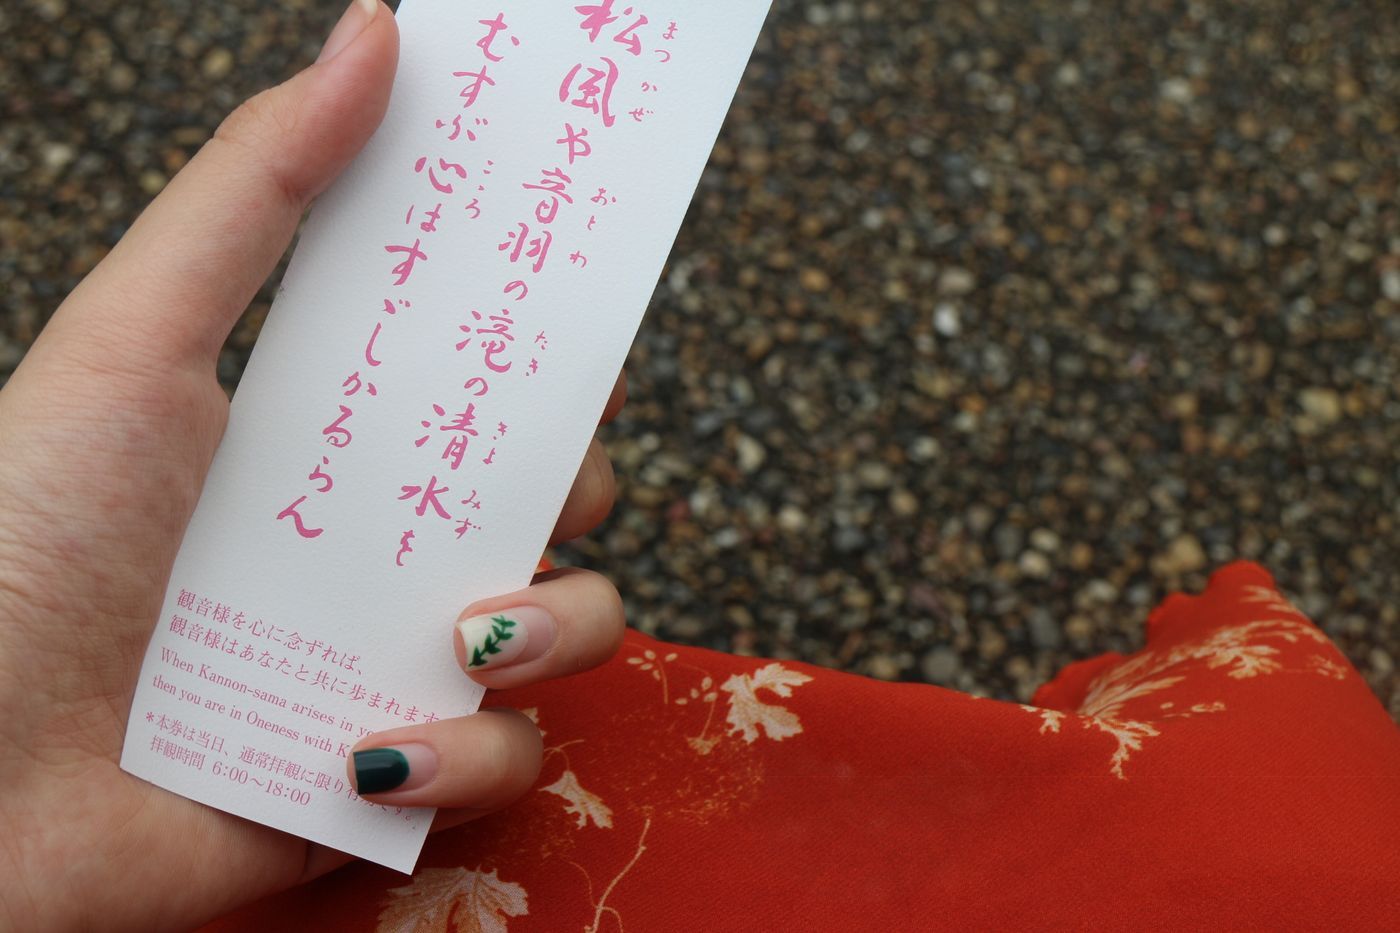 松風や音羽の滝の清水を
まつかぜ おとわ たき きよみず
むすぶ心はすゞしかるらん
こゝろ
観音様を心に念ずれば、
観音様はあなたと共に歩まれます
When Kannon-sama arises in
then you are in Oneness with
*本券は当日、通常拝観に限り有効です。
拝観時間 6:00～18:00